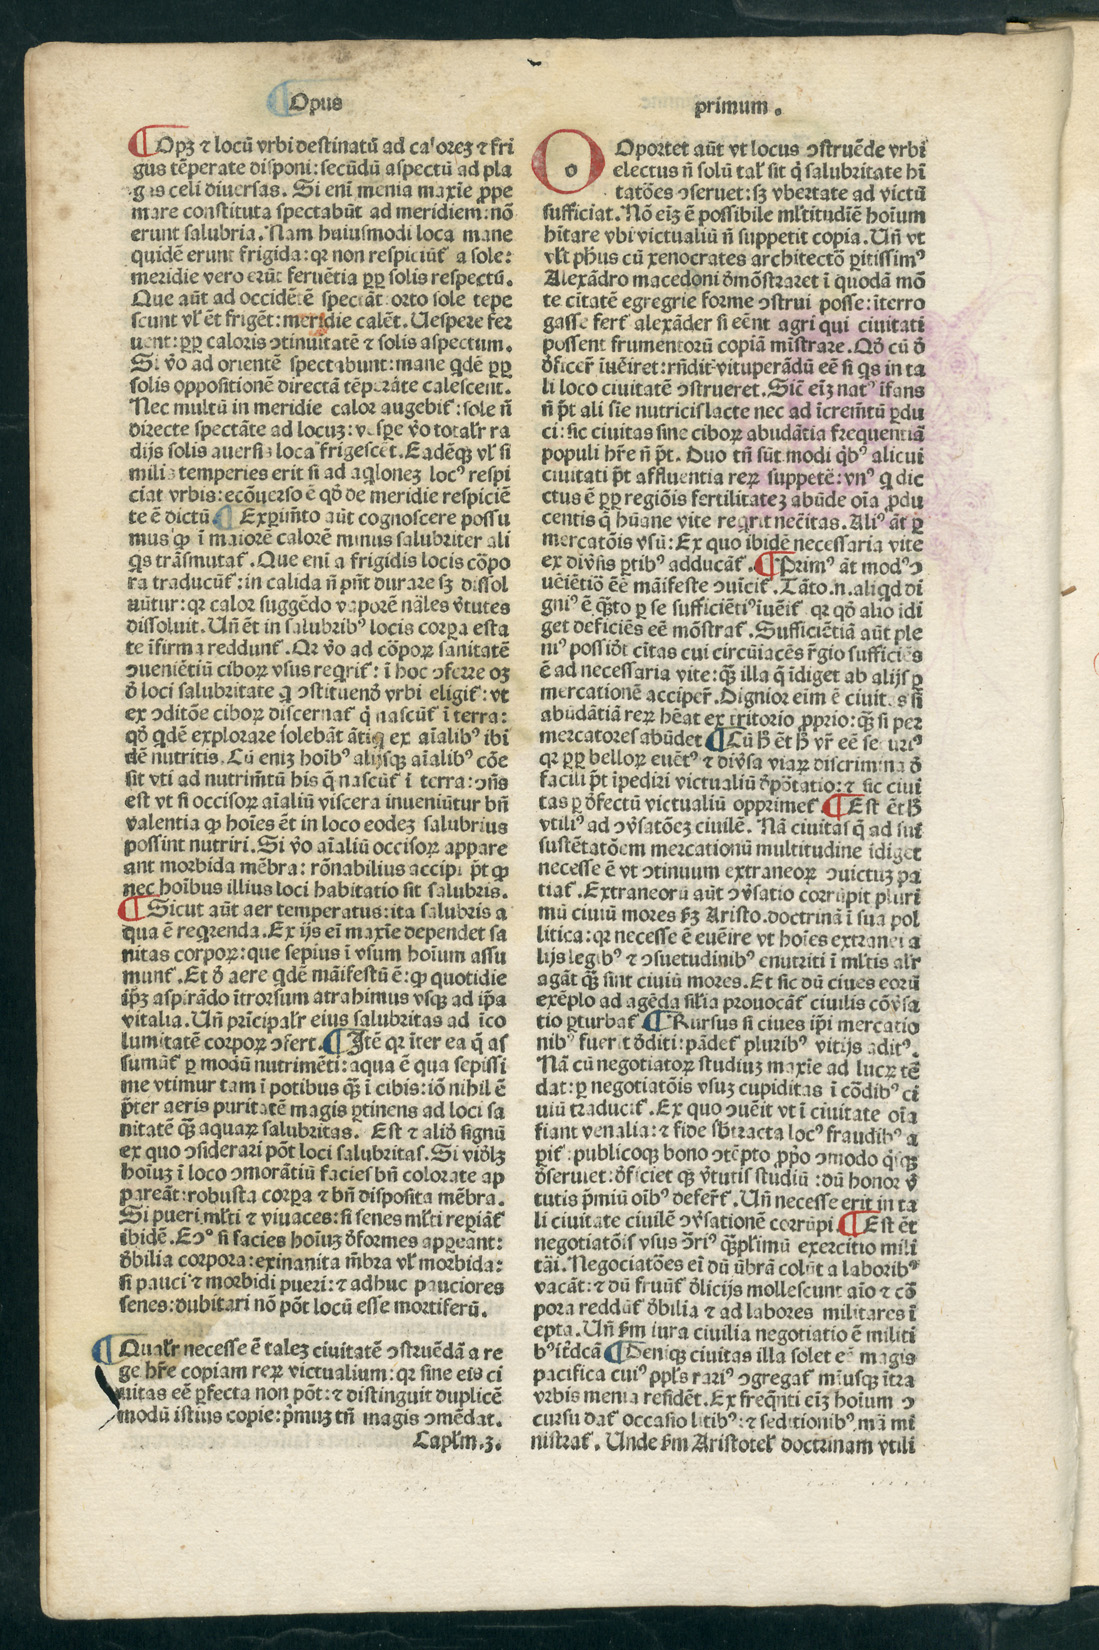 Opus
primum.
Opꝫ ⁊ locū vrbi destinatū ad caloreꝫ ⁊ fri
gus tēperate disponi: secūdū aspectū ad pla
gas celi diuersas. Si enī menia maxīe ꝓpe
mare constituta spectabūt ad meridiem: nō
erunt salubria. Nam huiusmodi loca mane
quidē erunt frigida: qꝛ non respiciūt̄ a sole:
meridie vero erūt feruētia ꝓpꝓ solis respectū.
Que aūt ad occidētē spectāt orto sole tepe
scunt vl̓ ēt frigēt: meridie calēt. Uespere fer
uent: ꝓpꝓ caloris ↄtinuitatē ⁊ solis aspectum.
Si v̄o ad orientē spectabunt: mane qͥdē ꝓpꝓ
solis oppositionē directā tēperāte calescent.
Nec multū in meridie calor augebit̄: sole n̄
directe spectāte ad locuꝫ: vespe v̄o totalr̄ ra
dijs solis auersis loca frigescēt. Eadēqꝫ vl̓ si
milis temperies erit si ad aqͥloneꝫ locꝰ respi
ciat vrbis: ecōuerso ē qd̓ de meridie respiciē
te ē dictū ¶ Exꝑim̄to aūt cognoscere possu
mus ꝙ ī maiorē calorē minus salubriter ali
qͥs trāsmutat̄. Que enī a frigidis locis cōpo
ra traducūt̄: in calida n̄ pn̄t durare sꝫ dissol
uūtur: qꝛ calor suggēdo vaporē nāles v̓tutes
dissoluit. Un̄ ēt in salubribꝰ locis corꝑa esta
te īfirma reddunt̄. Qꝛ v̄o ad cōpoꝝ sanitatē
ↄueniētiū ciboꝝ vsus reqͥrit̄: ī hoc ↄferre oꝫ
d̓ loci salubritate qͥ ↄstituendo vrbi eligit̄: vt
ex ↄditōe ciboꝝ discernat̄ q̄ nascūt̄ ī terra:
qd̓ qͥdē explorare solebāt ātiqͥ ex aīalibꝰ ibī
dē nutritis. Cū eniꝫ hoībꝰ alijsqꝫ aīalibꝰ cōe
sit vti ad nutrim̄tū his q̄ nascūt̄ ī terra: ↄn̄s
est vt si occisoꝝ aīaliū viscera inueniūtur bn̄
valentia ꝙ hoīes ēt in loco eodeꝫ salubrius
possint nutriri. Si v̄o aīaliū occisoꝝ appare
ant morbida mēbra: rōnabilius accipi pōt ꝙ
nec hoībus illius loci habitatio sit salubris.
¶ Sicut aūt aer temperatus: ita salubris a
qua ē reqͥrenda. Ex ijs eī maxīe dependet sa
nitas corpoꝝ: que sepius ī vsum hoīum assu
munt̄. Et d̓ aere qͥdē māifestū ē: ꝙ quotidie
ip̄ꝫ aspirādo ītrorsum atrahimus vsqꝫ ad ip̄a
vitalia. Un̄ pr̄incipalr̄ eius salubritas ad īco
lumitatē corpoꝝ ↄfert. ¶ Itē qꝛ īter ea q̄ as
sumūt̄ ꝑ modū nutrimēti: aqua ē qua sepissi
me vtimur tam ī potibus qꝫ̄ ī cibis: iō nihil ē
p̄ter aeris puritatē magis ꝑtinens ad loci sa
nitatē qꝫ̄ aquaꝝ salubritas. Est ⁊ aliud signū
ex quo ↄsiderari pōt loci salubritas. Si vidꝫ
hoīuꝫ ī loco ↄmorātiū facies bn̄ colorate ap
pareāt: robusta corꝑa ⁊ bn̄ disposita mēbra.
Si pueri ml̓ti ⁊ viuaces: si senes ml̓ti reꝑiāt̄
ibidē. Eↄꝰ si facies hoīuꝫ d̓formes appeant:
d̓bilia corpora: exinanita m̄bra vl̓ morbida:
si pauci ⁊ morbidi pueri: ⁊ adhuc pauciores
senes: dubitari nō pōt locū esse mortiferū.
¶ Qualr̄ necesse ē taleꝫ ciuitatē ↄstruēdā a re
ge hr̄e copiam reꝝ victualium: qꝛ sine eis ci
uitas eē ꝑfecta non pōt: ⁊ distinguit duplicē
modū istius copie: pͥmuꝫ tn̄ magis ↄmēdat.
Capl̓m. 3.
Oportet aūt vt locus ↄstruēde vrbi
electus n̄ solū tal̓ sit q̄ salubritate hī
tatōes ↄseruet: sꝫ vbertate ad victū
sufficiat. Nō eiꝫ ē possibile ml̓titudiē hoīum
hītare vbi victualiū n̄ suppetit copia. Un̄ vt
vl̓t ph̄us cū xenocrates architectō ꝑitissimꝰ
Alexādro macedoni d̓mōstraret ī quodā mō
te cītatē egregrie forme ↄstrui posse: īterro
gasse fert̄ alexāder si eēnt agri qui ciuitati
possent frumentorū copiā mīstrare. Qd̓ cū d̓
d̓ficer̄ īuēiret: rn̄dit vituperādū eē si qͥs in ta
li loco ciuitatē ↄstrueret. Sic̄ eiꝫ natꝰ īfans
n̄ pōt ali sīe nutricis lacte nec ad īcrem̄tū ꝑdu
ci: sic ciuitas sine ciboꝝ abūdātia frequentiā
populi hr̄e n̄ pōt. Duo tn̄ sūt modi qͥbꝰ alicui
ciuitati pōt affluentia reꝝ suppetē: vnꝰ qͥ dic
ctus ē ꝓpꝓ regiōis fertilitateꝫ abūde oīa ꝓdu
centis q̄ hūane vite reqͥrit nec̄itas. Aliꝰ āt ꝑ
mercatōis vsū: Ex quo ibidē necessaria vite
ex diu̓sis ꝑtibꝰ adducāt̄. ¶ Prīmꝰ āt modꝰ ↄ
uēiētiō eē māifeste ↄuīcit̄. Tāto. n. aliqͥd di
gniꝰ ē qꝫ̄to ꝑ se sufficiētiꝰ īuēit̄ qꝛ qd̓ alio īdi
get deficiēs eē mōstrat̄. Sufficiētiā aūt ple
niꝰ possid̓t cītas cui circūiacēs r̓gio sufficiēs
ē ad necessaria vite: qꝫ̄ illa q̄ īdiget ab alijs ꝑ
mercationē acciper̄. Dignior eim ē ciuitas si
abūdātiā reꝝ hēat ex tritorio ꝓprio: qꝫ̄ si per
mercatores abūdet ¶ Cū hͦ ēt hͦ vr̄ eē securiꝰ
qꝛ ꝓpꝓ belloꝝ euētꝰ ⁊ diu̓sa viaꝝ discrimina d̓
facili pōt īpediri victualiū d̓portatio: ⁊ sic ciui
tas ꝑ d̓fectū victualiū opprimet̄ ¶ Est ēt hͦ
vtiliꝰ ad ↄu̓satōeꝫ ciuilē. Nā ciuitas q̄ ad sui
sustētatōem mercationū multitudine īdiget
necesse ē vt ↄtinuum extraneoꝝ ↄuictuꝫ pa
tiat̄. Extraneorū aūt ↄu̓satio corrūpit pluri
mū ciuiū mores sꝫ Aristo. doctrinā ī sua pol
litica: qꝛ necesse ē euēire vt hoīes extranei a
lijs legibꝰ ⁊ ↄsuetudinibꝰ enutriti ī ml̓tis alr̄
agāt qꝫ̄ sint ciuiū mores. Et sic dū ciues eorū
exēplo ad agēda sil̓ia prouocāt̄ ciuilis cōu̓sa
tio ꝑturbat̄ ¶ Rursus si ciues ip̄i mercatio
nibꝰ fuerīt d̓diti: pādet̄ pluribꝰ vitijs aditꝰ.
Nā cū negotiatoꝝ studiuꝫ maxīe ad lucꝝ tē
dat: ꝑ negotiatōis vsuꝫ cupiditas ī cōdibꝰ ci
uiū traducit̄. Ex quo ↄuēit vt ī ciuitate oīa
fiant venalia: ⁊ fide sb̓tracta locꝰ fraudibꝰ a
ꝑit̄: publicoqꝫ bono ↄtēpto ꝓpͥo ↄmodo qͥsqꝫ
d̓seruiet: d̓ficiet qꝫ v̓tutis studiū: dū honor v̓
tutis p̄miū oībꝰ defert̄. Un̄ necesse erit in ta
li ciuitate ciuilē ↄu̓sationē corrūpi. ¶ Est ēt
negotiatōis vsus ↄ̄riꝰ qꝫ̄pl̓imū exercitio mili
tāi. Negociatōes eī dū vm̄brā colūt a laboribꝰ
vacāt: ⁊ dū fruūt̄ d̓licijs mollescunt aīo ⁊ cō
pora reddūt̄ d̓bilia ⁊ ad labores militares ī
epta. Un̄ sm̄ iura ciuilia negotiatio ē militi
bꝰ īt̄dcā ¶ Deniqꝫ ciuitas illa solet eē magis
pacifica cuiꝰ ppl̓s rariꝰ ↄgregat̄ miusqꝫ ītra
vrbis menia residēt. Ex freqͥnti eiꝫ hoīum ↄ
cursu dat̄ occasio litibꝰ: ⁊ seditionibꝰ mā mi
nistrat̄. Unde sm̄ Aristotel̓ doctrinam vtili